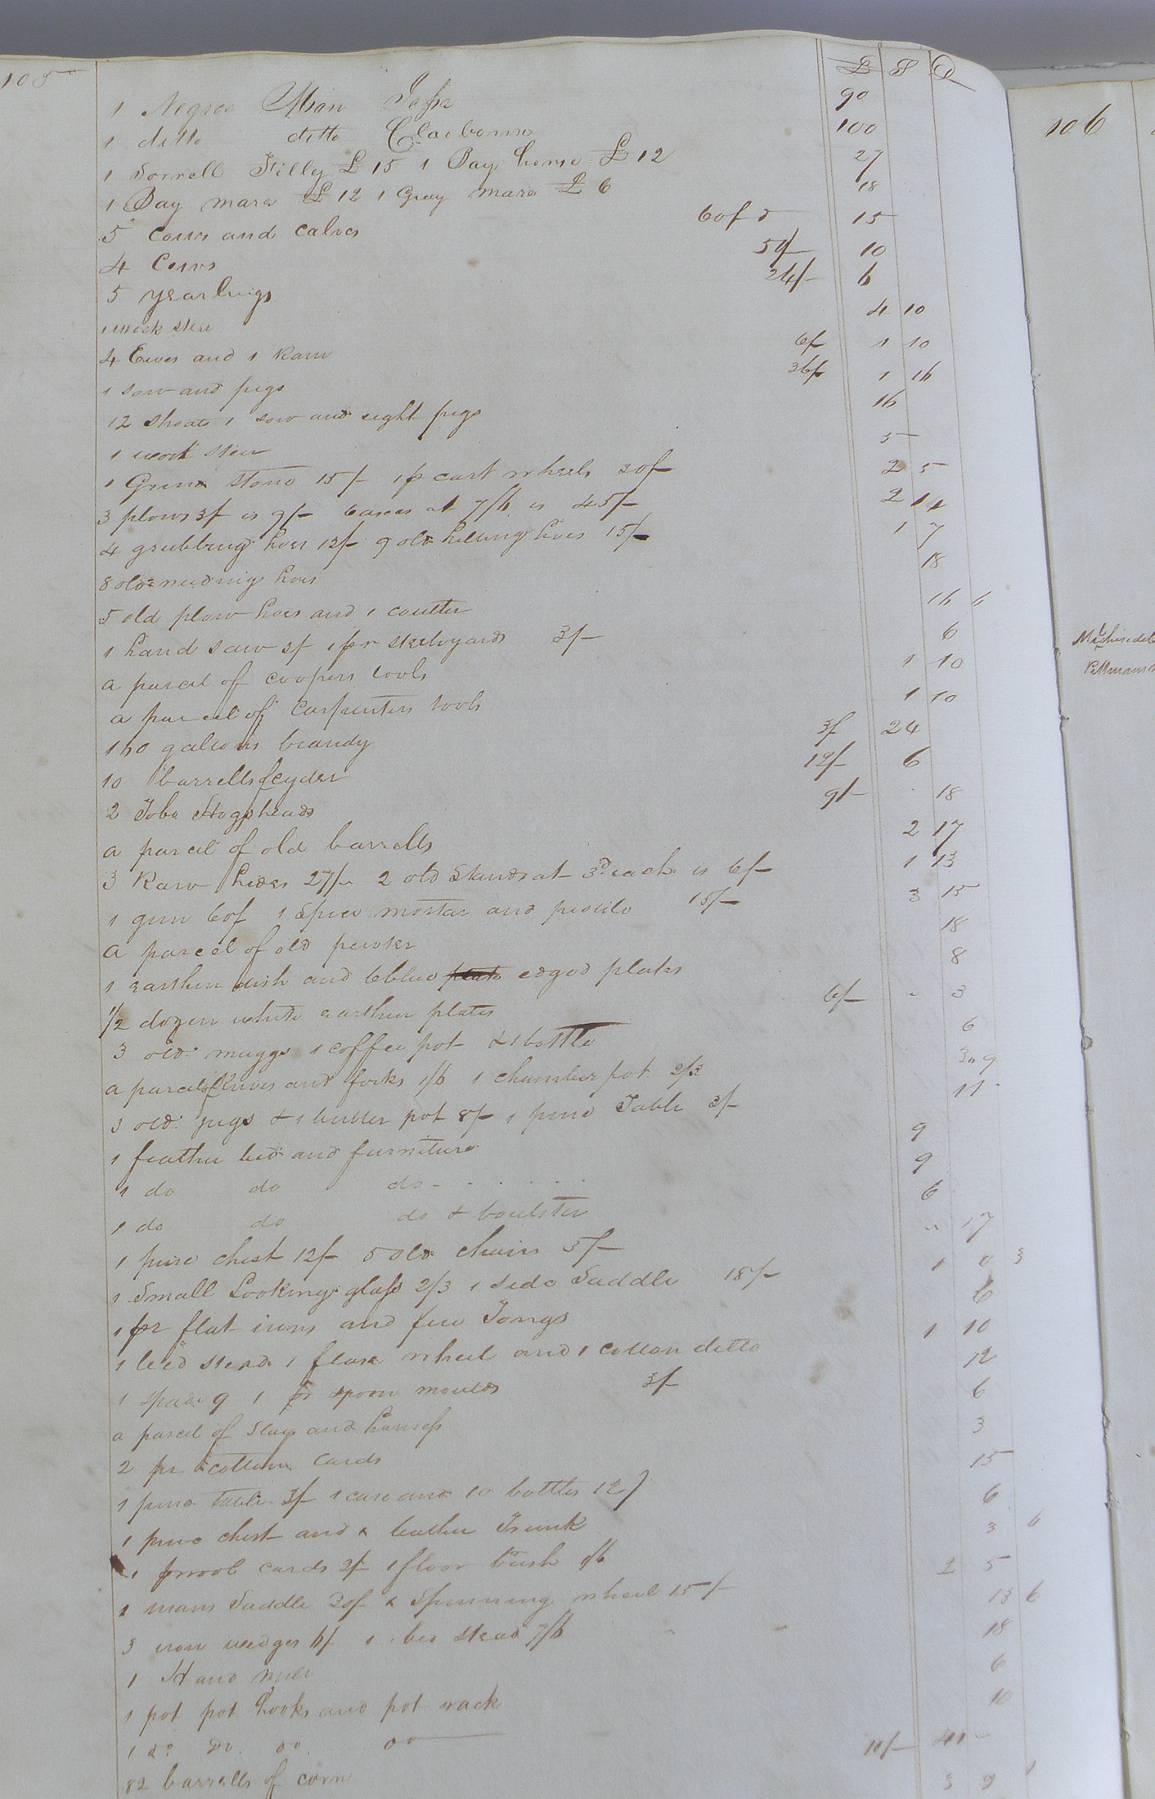 105
£ S D
1 Negroe Man 90
1 ditto ditto Claiborne 100
1 Sorrell Filly £ 15 1 Bay horse £ 12 27
1 Bay mare £ 12 1 Gray mare £ 6 18
5 cows and calves 60/ 15
4 Cows 50/- 10
5 yearlings 24/- 6
1 work steer 4 10
4 Ewes and 1 Ram 6/ 1 10
1 sow and pigs 36/ 1 16
12 shoats 1 sow and eight pigs 16
1 work steer 5
1 Grind stone 15/- 1 pr cart wheels 30/- 2 5
3 plows 3/ is 9/- 6 axes at 7/6 is 45/- 2 14
4 grubbing hoes 12/- 9 old hilling hoes 15/- 1 7
8 old weeding hoes 18
5 old plow hoes and 1 coulter 16 6
1 hand saw 3/ 1 pr steelyards 3/- 6
a parcel of coopers tools 1 10
a parcel of Carpenters tools 1 10
160 gallons brandy 3/ 24
10 barrells of cyder 12/- 6
2 Tobo Hogsheads 9/- 18
a parcel of old barrells 2 17
3 Raw hides 27/- 2 old Stands at 3d each is 6/- 1 13
1 gun 60/ 1 Spice mortar and pestile 15/- 3 15
a parcel of old pewter 18
1 earthen dish and 6 blue edged plates 8
1/2 dozen white earthen plates 6/- 3
3 old muggs 1 coffee pot & 1 bottle 6
a parcel of knives and forks 1/6 1 chamber pot 2/3 3 9
3 old jugs & 1 butter pot 8/- 1 pine Table 3/- 11
1 feather bed and furniture 9
1 do do do 9
1 do do do & boulster 6
1 pine chest 12/- 5 old chairs 5/- 17
1 Small Looking glass 2/3 1 side Saddle 18/- 1 0 3
1 pr flat irons and fire Tongs 6
1 bed stead 1 flax wheel and 1 cotton ditto 1 10
1 spade 9 1 pr spoon moulds 3/- 12
a parcel of Slays and harness 6
2 pr cotton Cards 3
1 pine table 3/ 1 case and 10 bottles 12/ 15
1 pine chest and 1 leather Trunk 6
1 pr wool cards 2/ 1 floor brush 1/6 3 6
1 mans Saddle 30/ 1 Spinning wheel 15/- 2 5
3 iron wedges 6/ 1 bed stead 7/6 13 6
1 Hand mill 18
1 pot pot hooks and pot rack 6
1 do do do do 10
82 barrells of corn 10/- 41
106